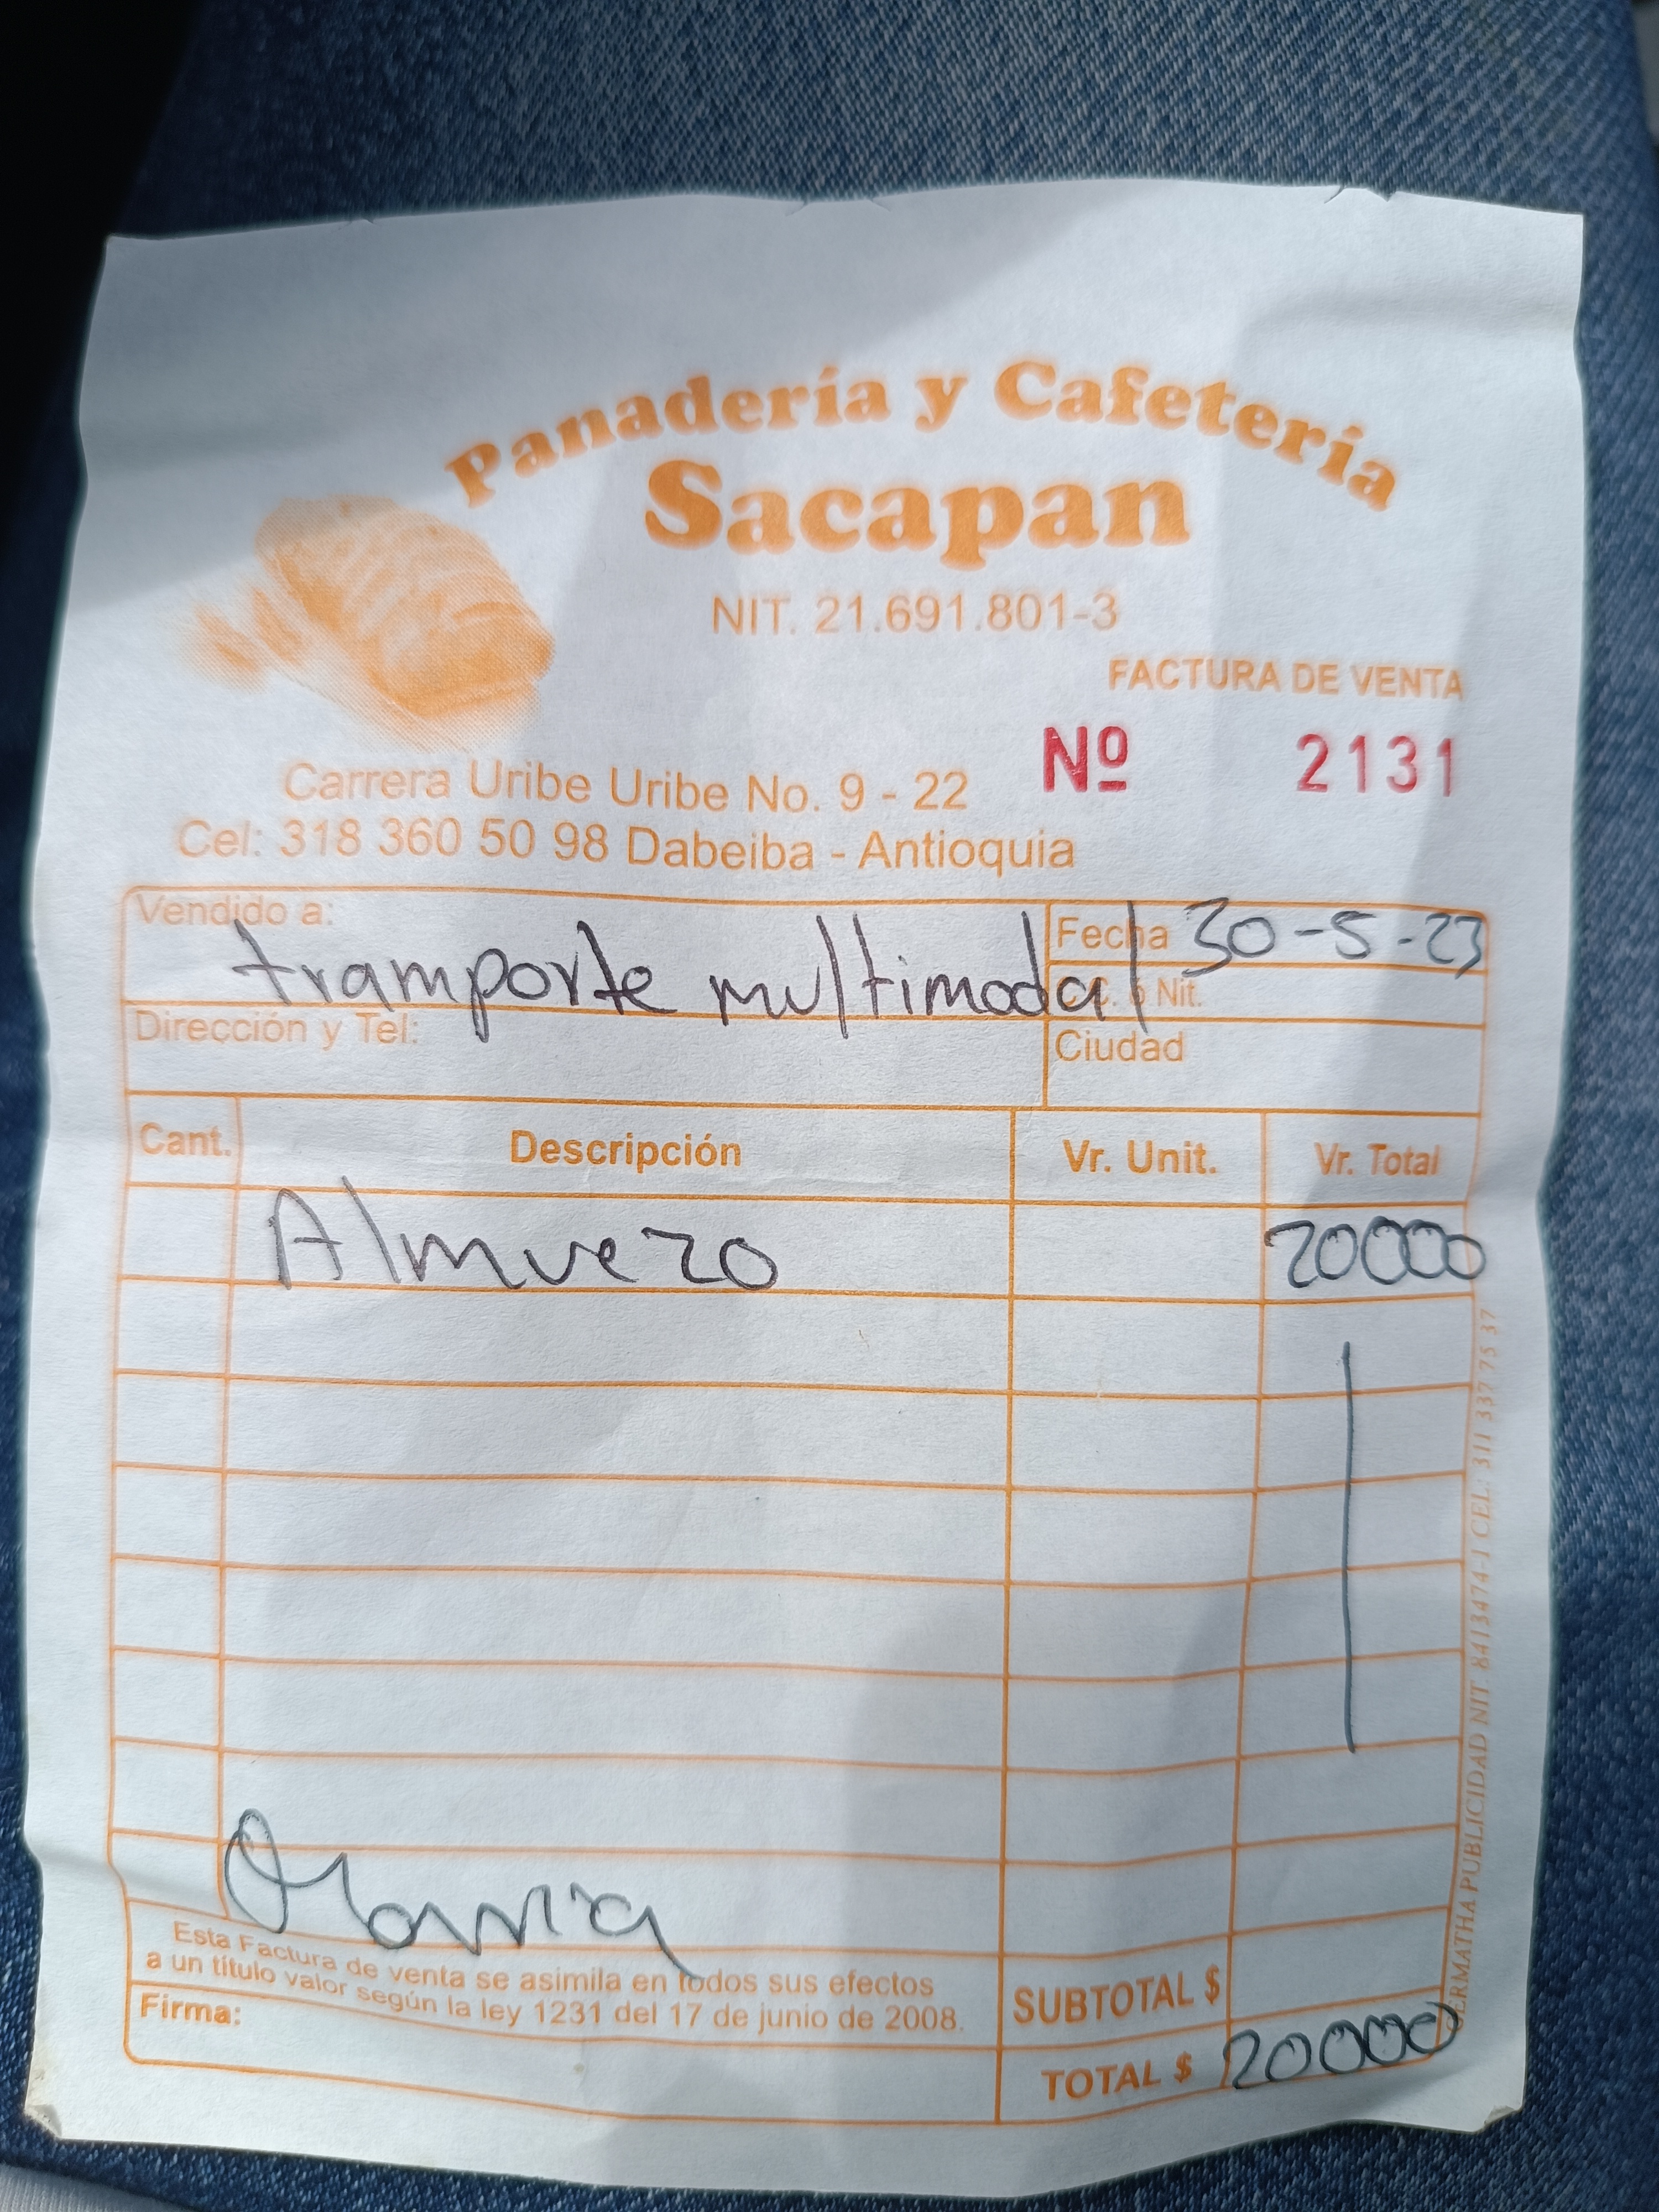 Panadería y Cafetería
Sacapan
NIT. 21.691.801-3
FACTURA DE VENTA
Nº 2131
Carrera Uribe Uribe No. 9 - 22
Cel: 318 360 50 98 Dabeiba - Antioquia
Vendido a: tramporte multimodal
Fecha 30-5-23
C.C. ó Nit.
Dirección y Tel:
Ciudad
Cant. Descripción Vr. Unit. Vr. Total
Almuezo 20000
Esta Factura de venta se asimila en todos sus efectos
a un título valor según la ley 1231 del 17 de junio de 2008.
Firma:
SUBTOTAL $
TOTAL $ 20000
GERMATHA PUBLICIDAD NIT. 8413474-1 CEL.: 311 337 75 37